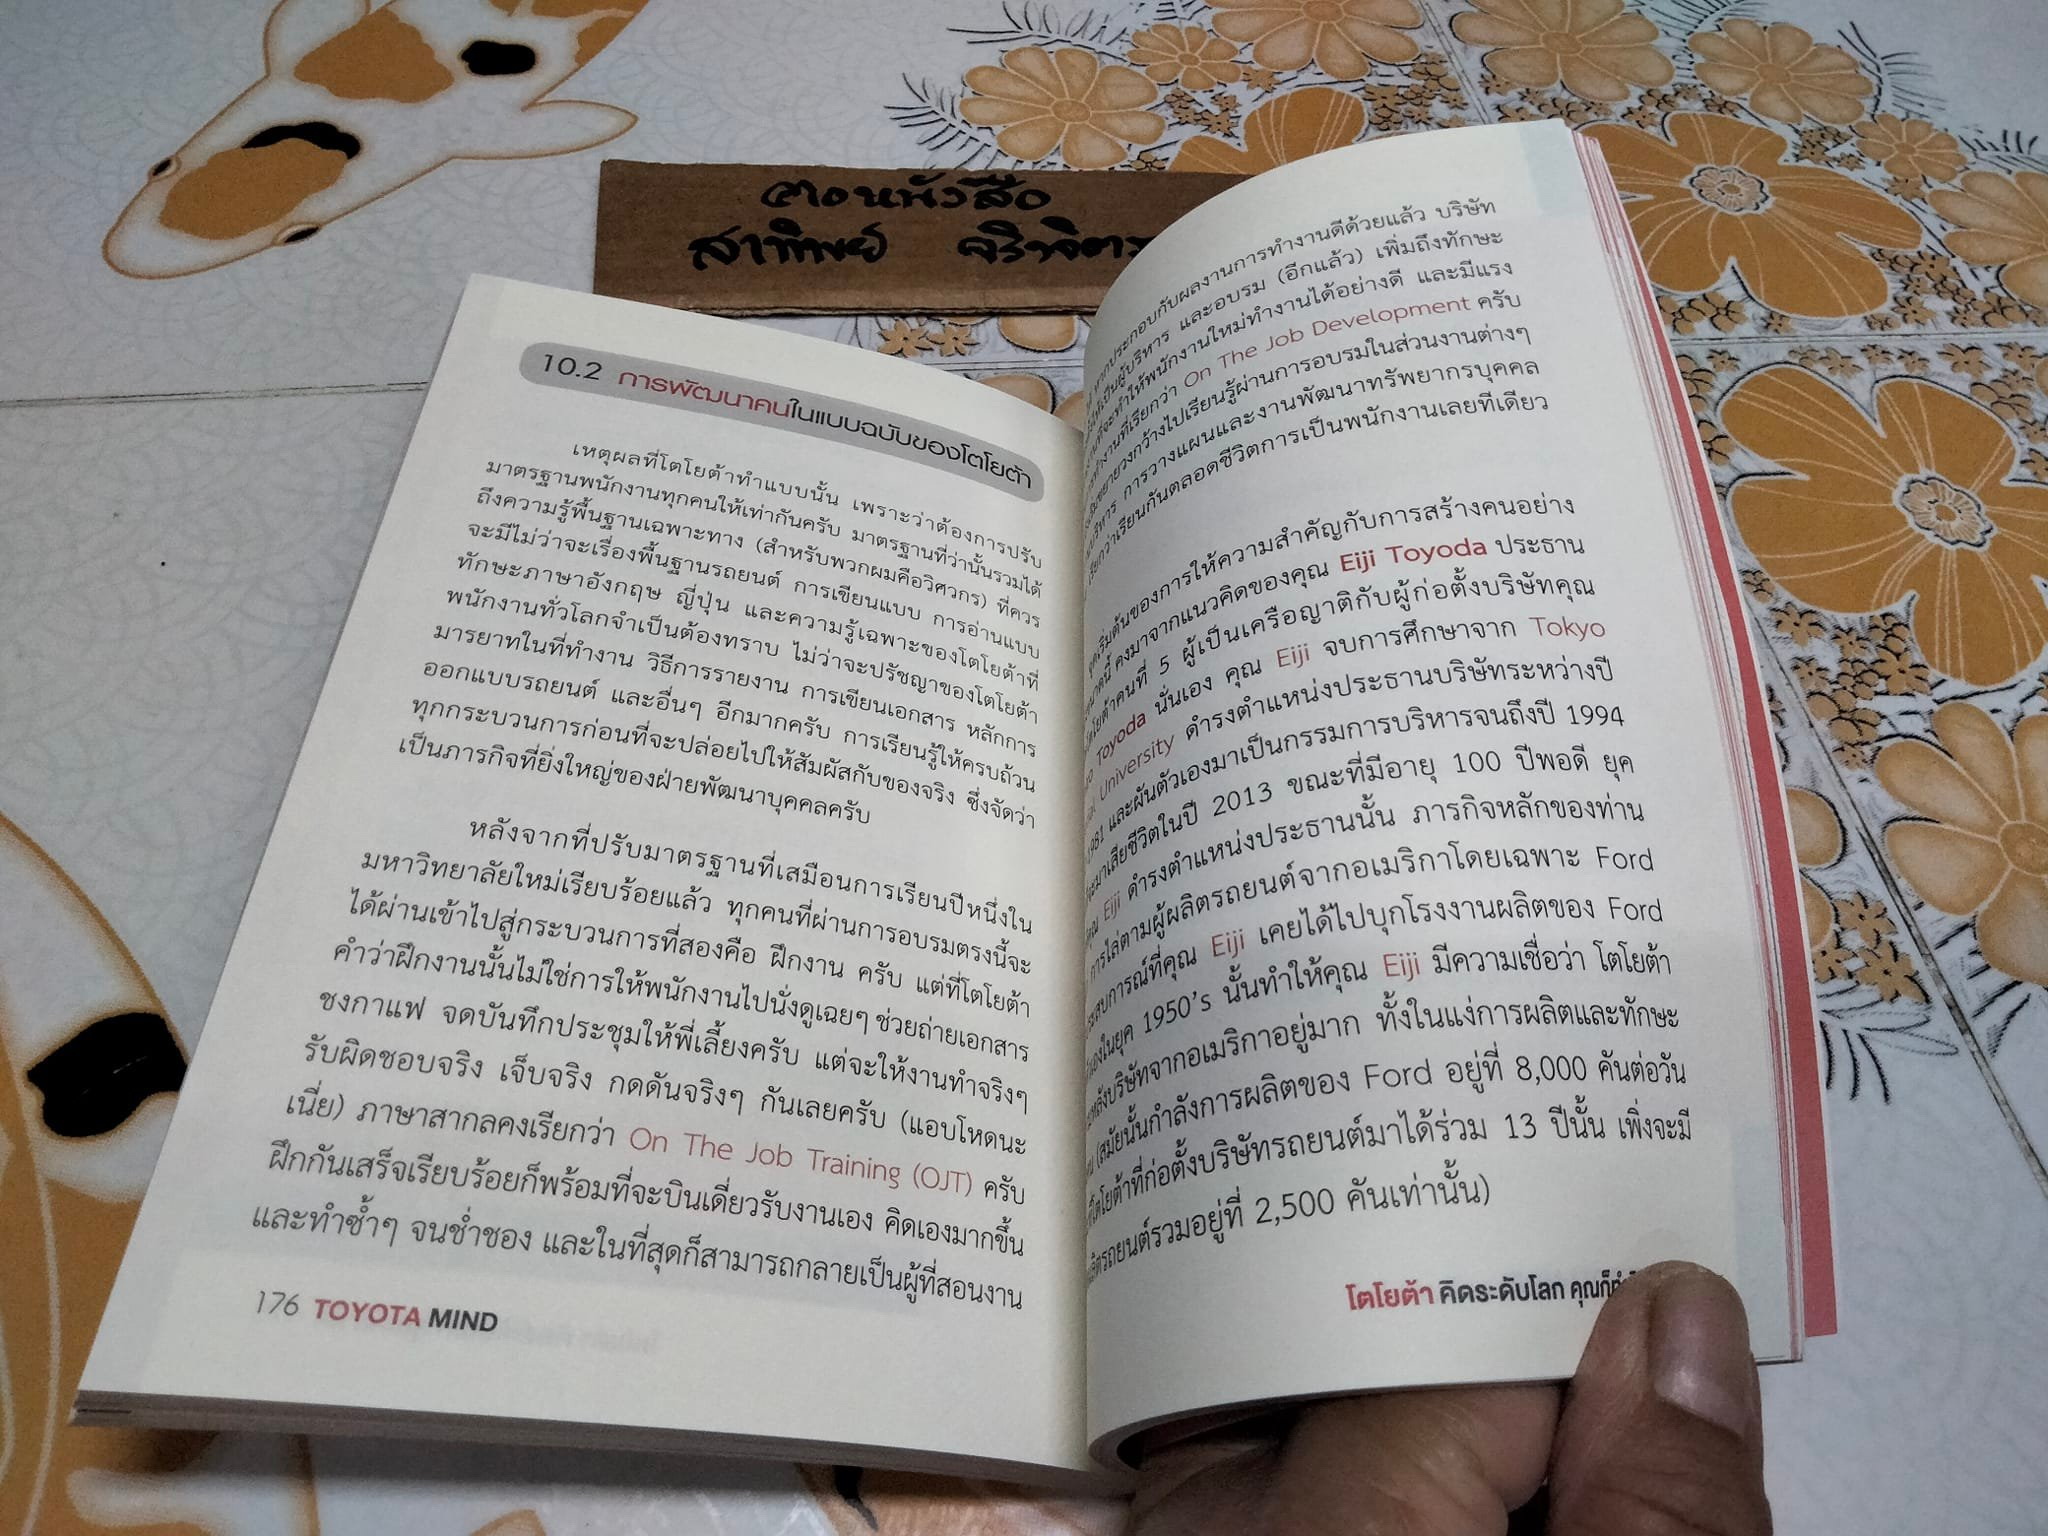 สาทิพย์
10.2 การพัฒนาคนในแบบฉบับของโตโยต้า
เหตุผลที่โตโยต้าทำแบบนั้น เพราะว่าต้องการปรับ
มาตรฐานพนักงานทุกคนให้เท่ากันครับ มาตรฐานที่ว่านั้นรวมได้
ถึงความรู้พื้นฐานเฉพาะทาง (สำหรับพวกผมคือวิศวกร) ที่ควร
จะมีไม่ว่าจะเรื่องพื้นฐานรถยนต์ การเขียนแบบ การอ่านแบบ
ทักษะภาษาอังกฤษ ญี่ปุ่น และความรู้เฉพาะของโตโยต้าที่
พนักงานทั่วโลกจำเป็นต้องทราบ ไม่ว่าจะปรัชญาของโตโยต้า
มารยาทในที่ทำงาน วิธีการรายงาน การเขียนเอกสาร หลักการ
ออกแบบรถยนต์ และอื่นๆ อีกมากครับ การเรียนรู้ให้ครบถ้วน
ทุกกระบวนการก่อนที่จะปล่อยไปให้สัมผัสกับของจริง ซึ่งจัดว่า
เป็นภารกิจที่ยิ่งใหญ่ของฝ่ายพัฒนาบุคคลครับ
หลังจากที่ปรับมาตรฐานที่เสมือนการเรียนปีหนึ่งใน
มหาวิทยาลัยใหม่เรียบร้อยแล้ว ทุกคนที่ผ่านการอบรมตรงนี้จะ
ได้ผ่านเข้าไปสู่กระบวนการที่สองคือ ฝึกงาน ครับ แต่ที่โตโยต้า
คำว่าฝึกงานนั้นไม่ใช่การให้พนักงานไปนั่งดูเฉยๆ ช่วยถ่ายเอกสาร
ชงกาแฟ จดบันทึกประชุมให้พี่เลี้ยงครับ แต่จะให้งานทำจริงๆ
รับผิดชอบจริง เจ็บจริง กดดันจริงๆ กันเลยครับ (แอบโหดนะ
เนี่ย) ภาษาสากลคงเรียกว่า On The Job Training (OJT) ครับ
ฝึกกันเสร็จเรียบร้อยก็พร้อมที่จะบินเดี่ยวรับงานเอง คิดเองมากขึ้น
และทำซ้ำๆ จนช่ำชอง และในที่สุดก็สามารถกลายเป็นผู้ที่สอนงาน
176 TOYOTA MIND
หากประกอบกับผลงานการทำงานดีด้วยแล้ว บริษัท
ให้เป็นผู้บริหาร และอบรม (อีกแล้ว) เพิ่มถึงทักษะ
ที่จะทำให้พนักงานใหม่ทำงานได้อย่างดี และมีแรง
ทำงานที่เรียกว่า On The Job Development ครับ
ขยายวงกว้างไปเรียนรู้ผ่านการอบรมในส่วนงานต่างๆ
บริหาร การวางแผนและงานพัฒนาทรัพยากรบุคคล
เรียกว่าเรียนกันตลอดชีวิตการเป็นพนักงานเลยทีเดียว
จุดเริ่มต้นของการให้ความสำคัญกับการสร้างคนอย่าง
คงมาจากแนวคิดของคุณ Eiji Toyoda ประธาน
โตโยต้าคนที่ 5 ผู้เป็นเครือญาติกับผู้ก่อตั้งบริษัทคุณ
Toyoda นั่นเอง คุณ Eiji จบการศึกษาจาก Tokyo
University ดำรงตำแหน่งประธานบริษัทระหว่างปี
1981 และผันตัวเองมาเป็นกรรมการบริหารจนถึงปี 1994
มาเสียชีวิตในปี 2013 ขณะที่มีอายุ 100 ปีพอดี ยุค
คุณ Eiji ดำรงตำแหน่งประธานนั้น ภารกิจหลักของท่าน
การไล่ตามผู้ผลิตรถยนต์จากอเมริกาโดยเฉพาะ Ford
ประสบการณ์ที่คุณ Eiji เคยได้ไปบุกโรงงานผลิตของ Ford
ในยุค 1950's นั้นทำให้คุณ Eiji มีความเชื่อว่า โตโยต้า
หลังบริษัทจากอเมริกาอยู่มาก ทั้งในแง่การผลิตและทักษะ
(สมัยนั้นกำลังการผลิตของ Ford อยู่ที่ 8,000 คันต่อวัน
โตโยต้าที่ก่อตั้งบริษัทรถยนต์มาได้ร่วม 13 ปีนั้น เพิ่งจะมี
ผลิตรถยนต์รวมอยู่ที่ 2,500 คันเท่านั้น)
โตโยต้า คิดระดับโลก คุณก็